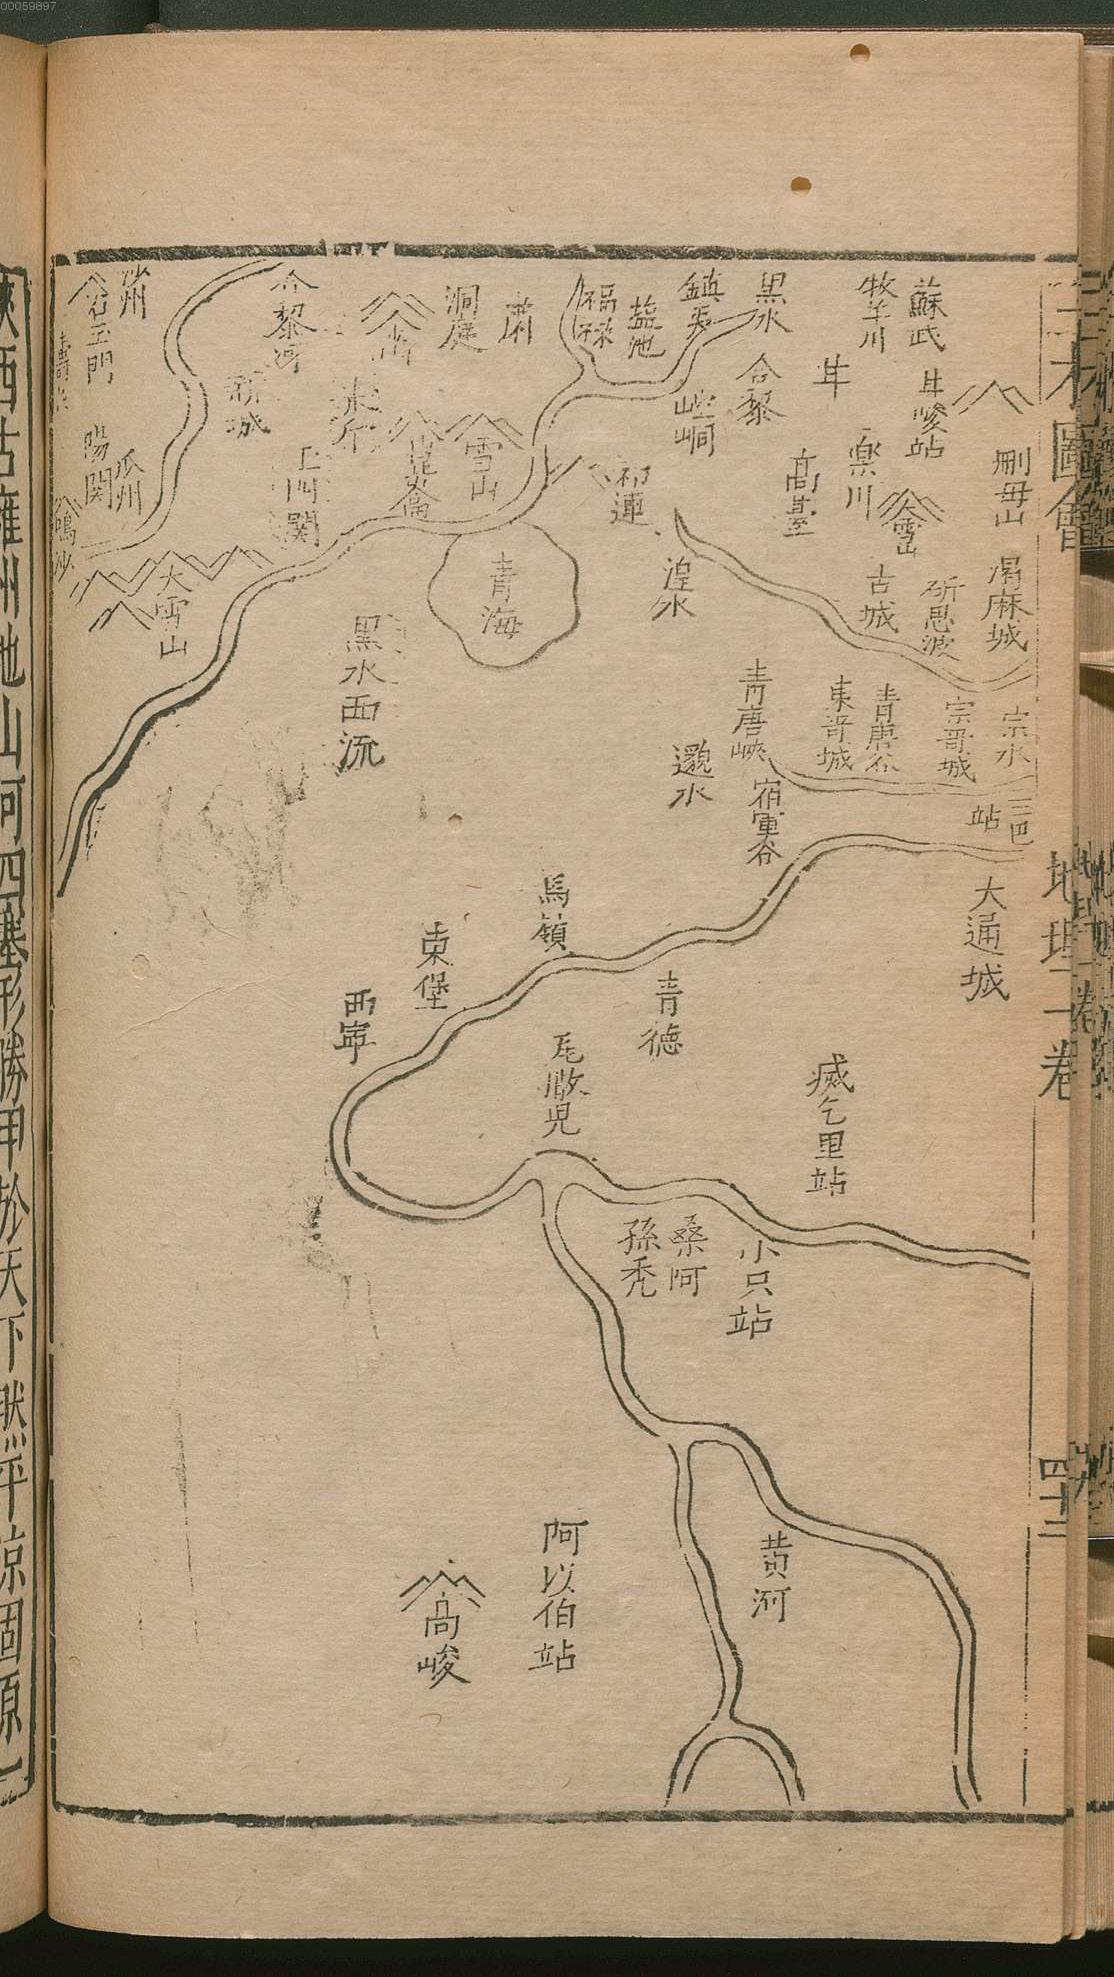 00059897
三才圖會
地理二卷
四十二
蘇武
牧羊川
黑水
鎮夷
鹽池
福祿
肅
洞庭
合黎河
沙州
古玉門
甘峻站
甘
合黎
崆峒
刪毋山
樂川
高臺
祁連
雪山
崑崙
新城
陽関
瓜州
鳴沙
雪山
渴麻城
斫思波
古城
湟水
青海
大雪山
黒水西流
宗水
宗哥城
青唐谷
東哥城
青唐峽
邈水
宿軍谷
三巴
站
大通城
馬嶺
東堡
西寕
青德
瓦敞児
滅乞里站
小只站
桑阿
孫禿
黄河
阿以伯站
高峻
陜西古雍州地山河四塞形勝甲於天下然平涼固原一